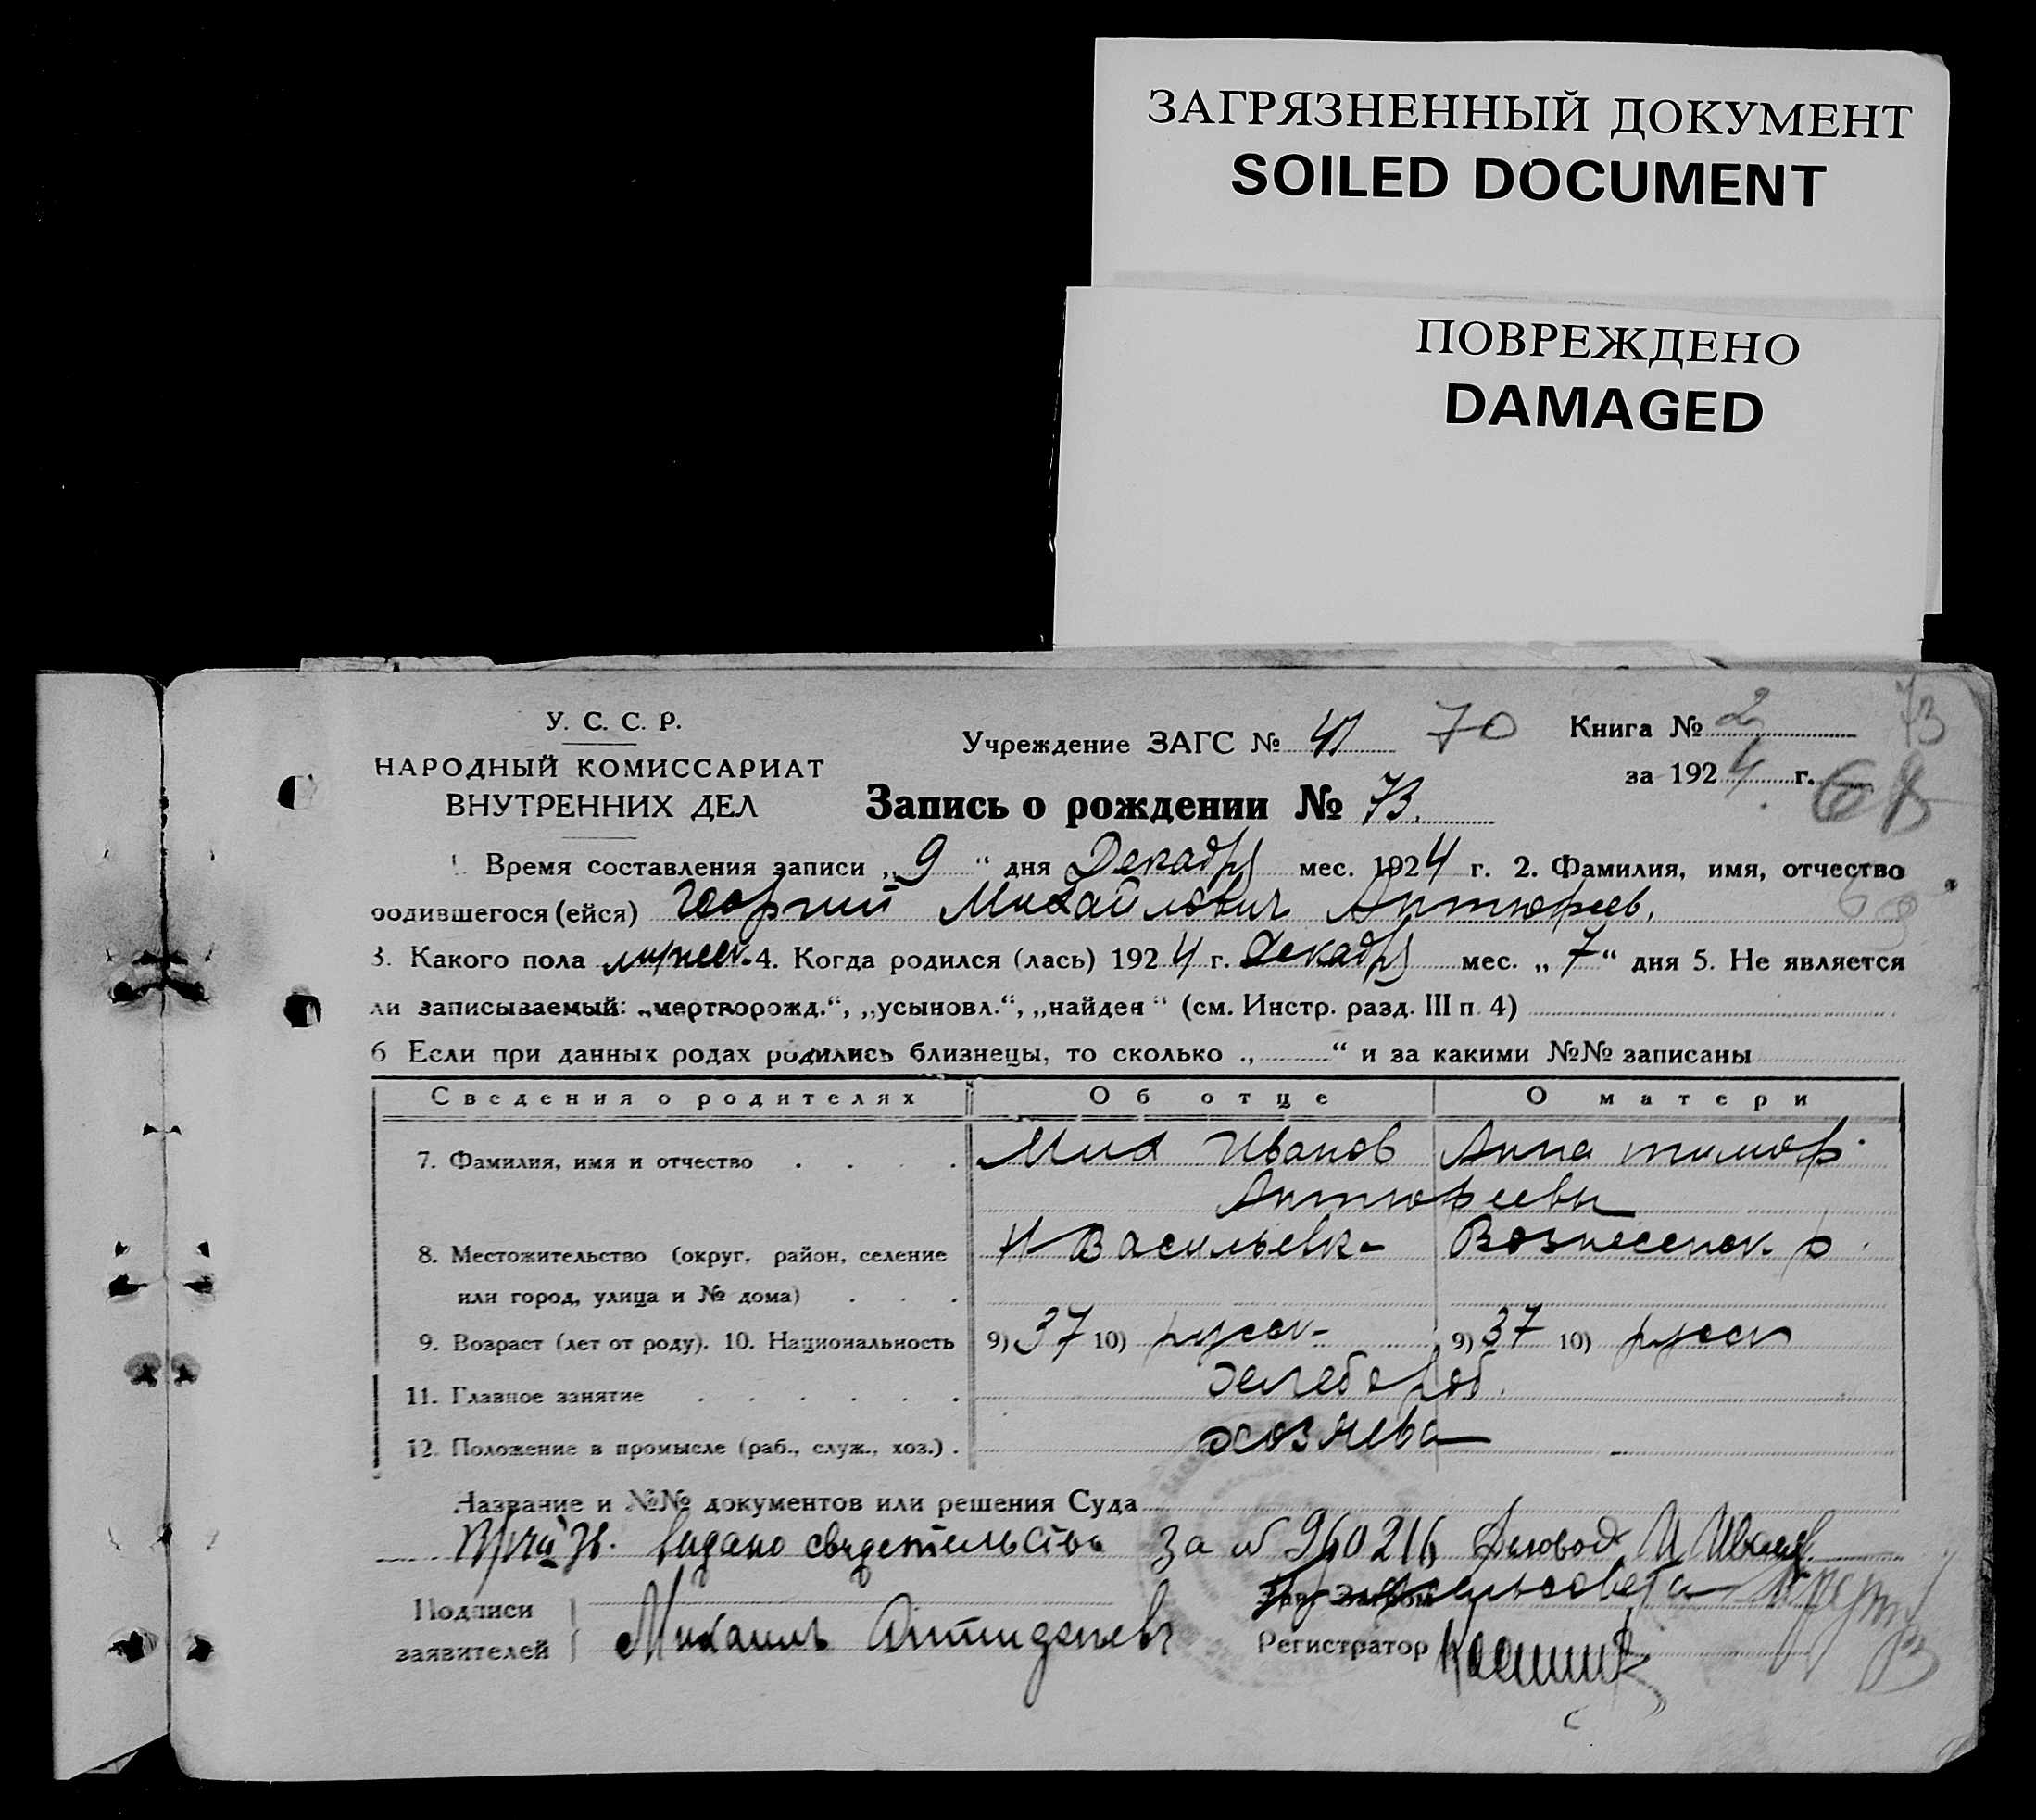 ЗАГРЯЗНЕННЫЙ ДОКУМЕНТ
SOILED DOCUMENT
ПОВРЕЖДЕНО
DAMAGED
73
У. С. С. Р.
Учреждение ЗАГС № 41 70 Книга № 2
НАРОДНЫЙ КОМИССАРИАТ
за 1924 г. 68
ВНУТРЕННИХ ДЕЛ
Запись о рождении № 73.
1. Время составления записи „9“ дня Декабря мес. 1924 г. 2. Фамилия, имя, отчество
родившегося (ейся) Георгий Михайлович Антюфеев,
3. Какого пола мужеск. 4. Когда родился (лась) 1924 г. Декабря мес. „7“ дня 5. Не является
ли записываемый: „мертворожд.“, „усыновл.“, „найден“ (см. Инстр. разд. III п. 4)
6 Если при данных родах родились близнецы, то сколько „ “ и за какими №№ записаны
Сведения о родителях Об отце О матери
7. Фамилия, имя и отчество Мих Иванов Анна тимоф.
Антюфеевы
8. Местожительство (округ, район, селение Н Васильевка Вознесенск. р.
или город, улица и № дома)
9. Возраст (лет от роду). 10. Национальность 9) 37 10) русск 9) 37 10) русск
11. Главное занятие хлебороб.
12. Положение в промысле (раб., служ., хоз.) хозяева
Название и №№ документов или решения Суда
выдано свидетельство за № 960216 Деловод И Иванов
сельсовета
Подписи
заявителей Михаилъ Антидеевъ Регистратор